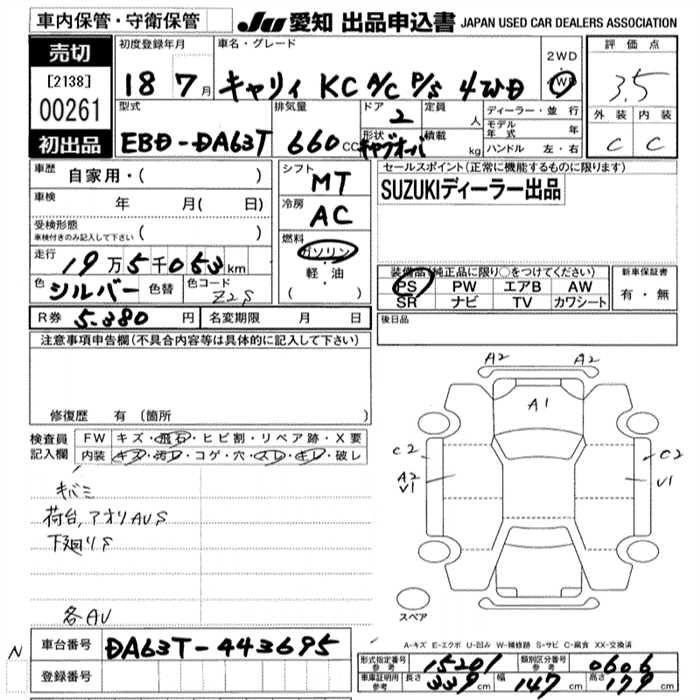 車内保管・守衛保管
JU 愛知 出品申込書 JAPAN USED CAR DEALERS ASSOCIATION
売切
[2138]
00261
初出品
初度登録年月
18 7月
車名・グレード
キャリィ KC A/C P/S 4WD
2WD
4WD
評価点
3.5
外装 内装
C C
型式
EBD-DA63T
排気量
660 CC
ドア 2
形状 キャブオーバ
定員 人
積載 kg
ディーラー・並行
モデル年式 年
ハンドル 左・右
車歴 自家用・( )
車検 年 月( 日)
受検形態 ( )
車検付きのみ記入して下さい
走行 19万5千053km
色 シルバー 色替 色コード Z2S
シフト MT
冷房 AC
燃料 ガソリン・軽油
( )
セールスポイント(正常に機能するものに限ります)
SUZUKIディーラー出品
装備品(純正品に限り○をつけてください)
PS PW エアB AW
SR ナビ TV カワシート
新車保証書
有・無
R券 5.380 円 名変期限 月 日
後日品
注意事項申告欄(不具合内容等は具体的に記入して下さい)
修復歴 有(箇所 )
検査員記入欄
FW キズ・飛石・ヒビ割・リペア跡・X要
内装 キズ・汚レ・コゲ・穴・スレ・キレ・破レ
キバミ
荷台,アオリAUS
下廻りS
各AU
A2 A2
A1
C2 C2
A2
V1 V1
スペア
A-キズ E-エクボ U-凹み W-補修跡 S-サビ C-腐食 XX-交換済
N
車台番号 DA63T-443695
登録番号
形式指定番号 参考 15201 類別区分番号 参考 0606
車庫証明用 参考 長さ 339cm 幅 147cm 高さ 179cm